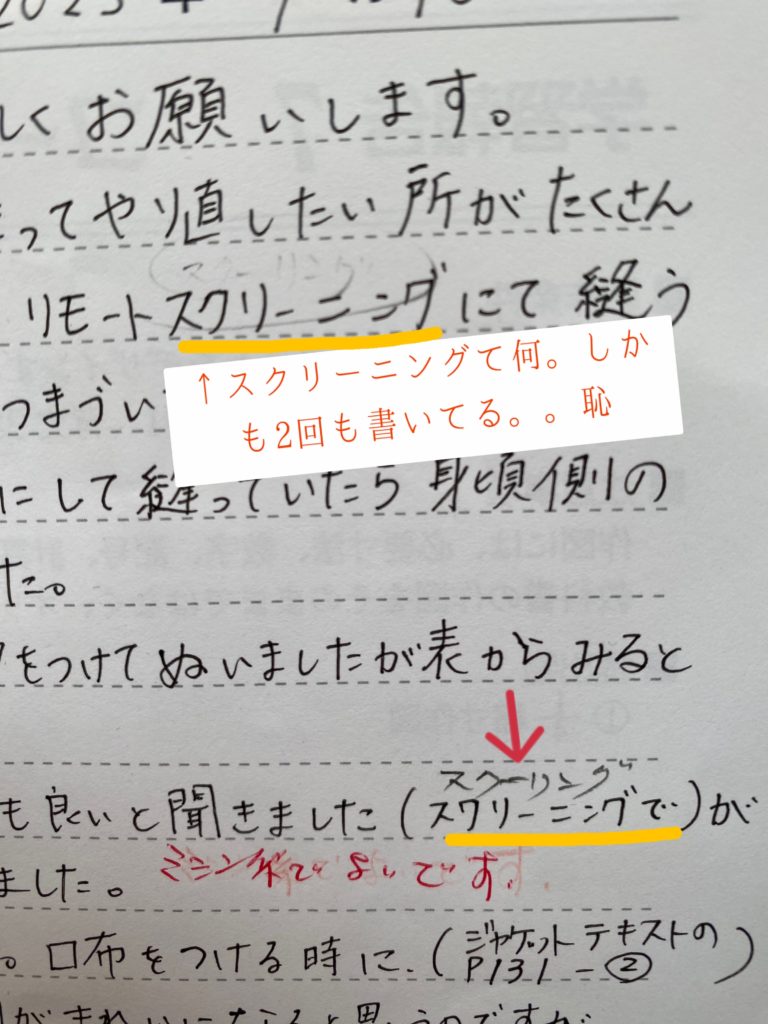 しくお願いします。
ってやり直したい所がたくさん
スクーリング
リモートスクリーニングにて縫う
つまづい
↑スクリーニングて何。しか
も2回も書いてる。。恥
にして縫っていたら身頃側の
た。
をつけてぬいましたが表からみると
スクーリング
も良いと聞きました(スクリーニングで)が
ました。
ミシンでよいです。
。口布をつける時に.(ジャケットテキストの
P131-②)